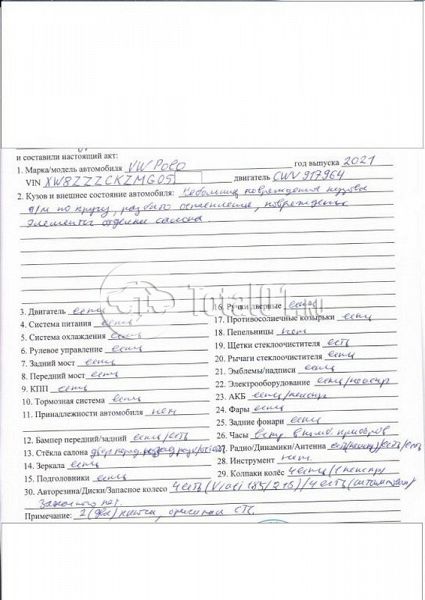 и составили настоящий акт:
1. Марка/модель автомобиля VW Polo год выпуска 2021
VIN XW8ZZZCKZMG05 двигатель CWV 917964
2. Кузов и внешнее состояние автомобиля: Небольшие повреждения кузова
по кругу, разбито остекление, повреждены
элементы отделки салона
3. Двигатель есть
4. Система питания есть
5. Система охлаждения есть
6. Рулевое управление есть
7. Задний мост есть
8. Передний мост есть
9. КПП есть
10. Тормозная система есть
11. Принадлежности автомобиля нет
12. Бампер передний/задний есть/есть
13. Стёкла салона
14. Зеркала есть
15. Подголовники есть
16. Ручки дверные есть
17. Противосолнечные козырьки есть
18. Пепельницы нет
19. Щетки стеклоочистителя есть
20. Рычаги стеклоочистителя есть
21. Эмблемы/надписи есть
22. Электрооборудование есть/неиспр
23. АКБ есть/неиспр
24. Фары есть
25. Задние фонари есть
26. Часы есть в комб. приборов
27. Радио/Динамики/Антенна есть
28. Инструмент нет
29. Колпаки колёс 4 есть (1 неиспр)
30. Авторезина/Диски/Запасное колесо 4 есть (Viatti 185/ )/4 есть
Запасного нет.
Примечание: 2 (два) ключа, оригинал СТС
Total01.ru